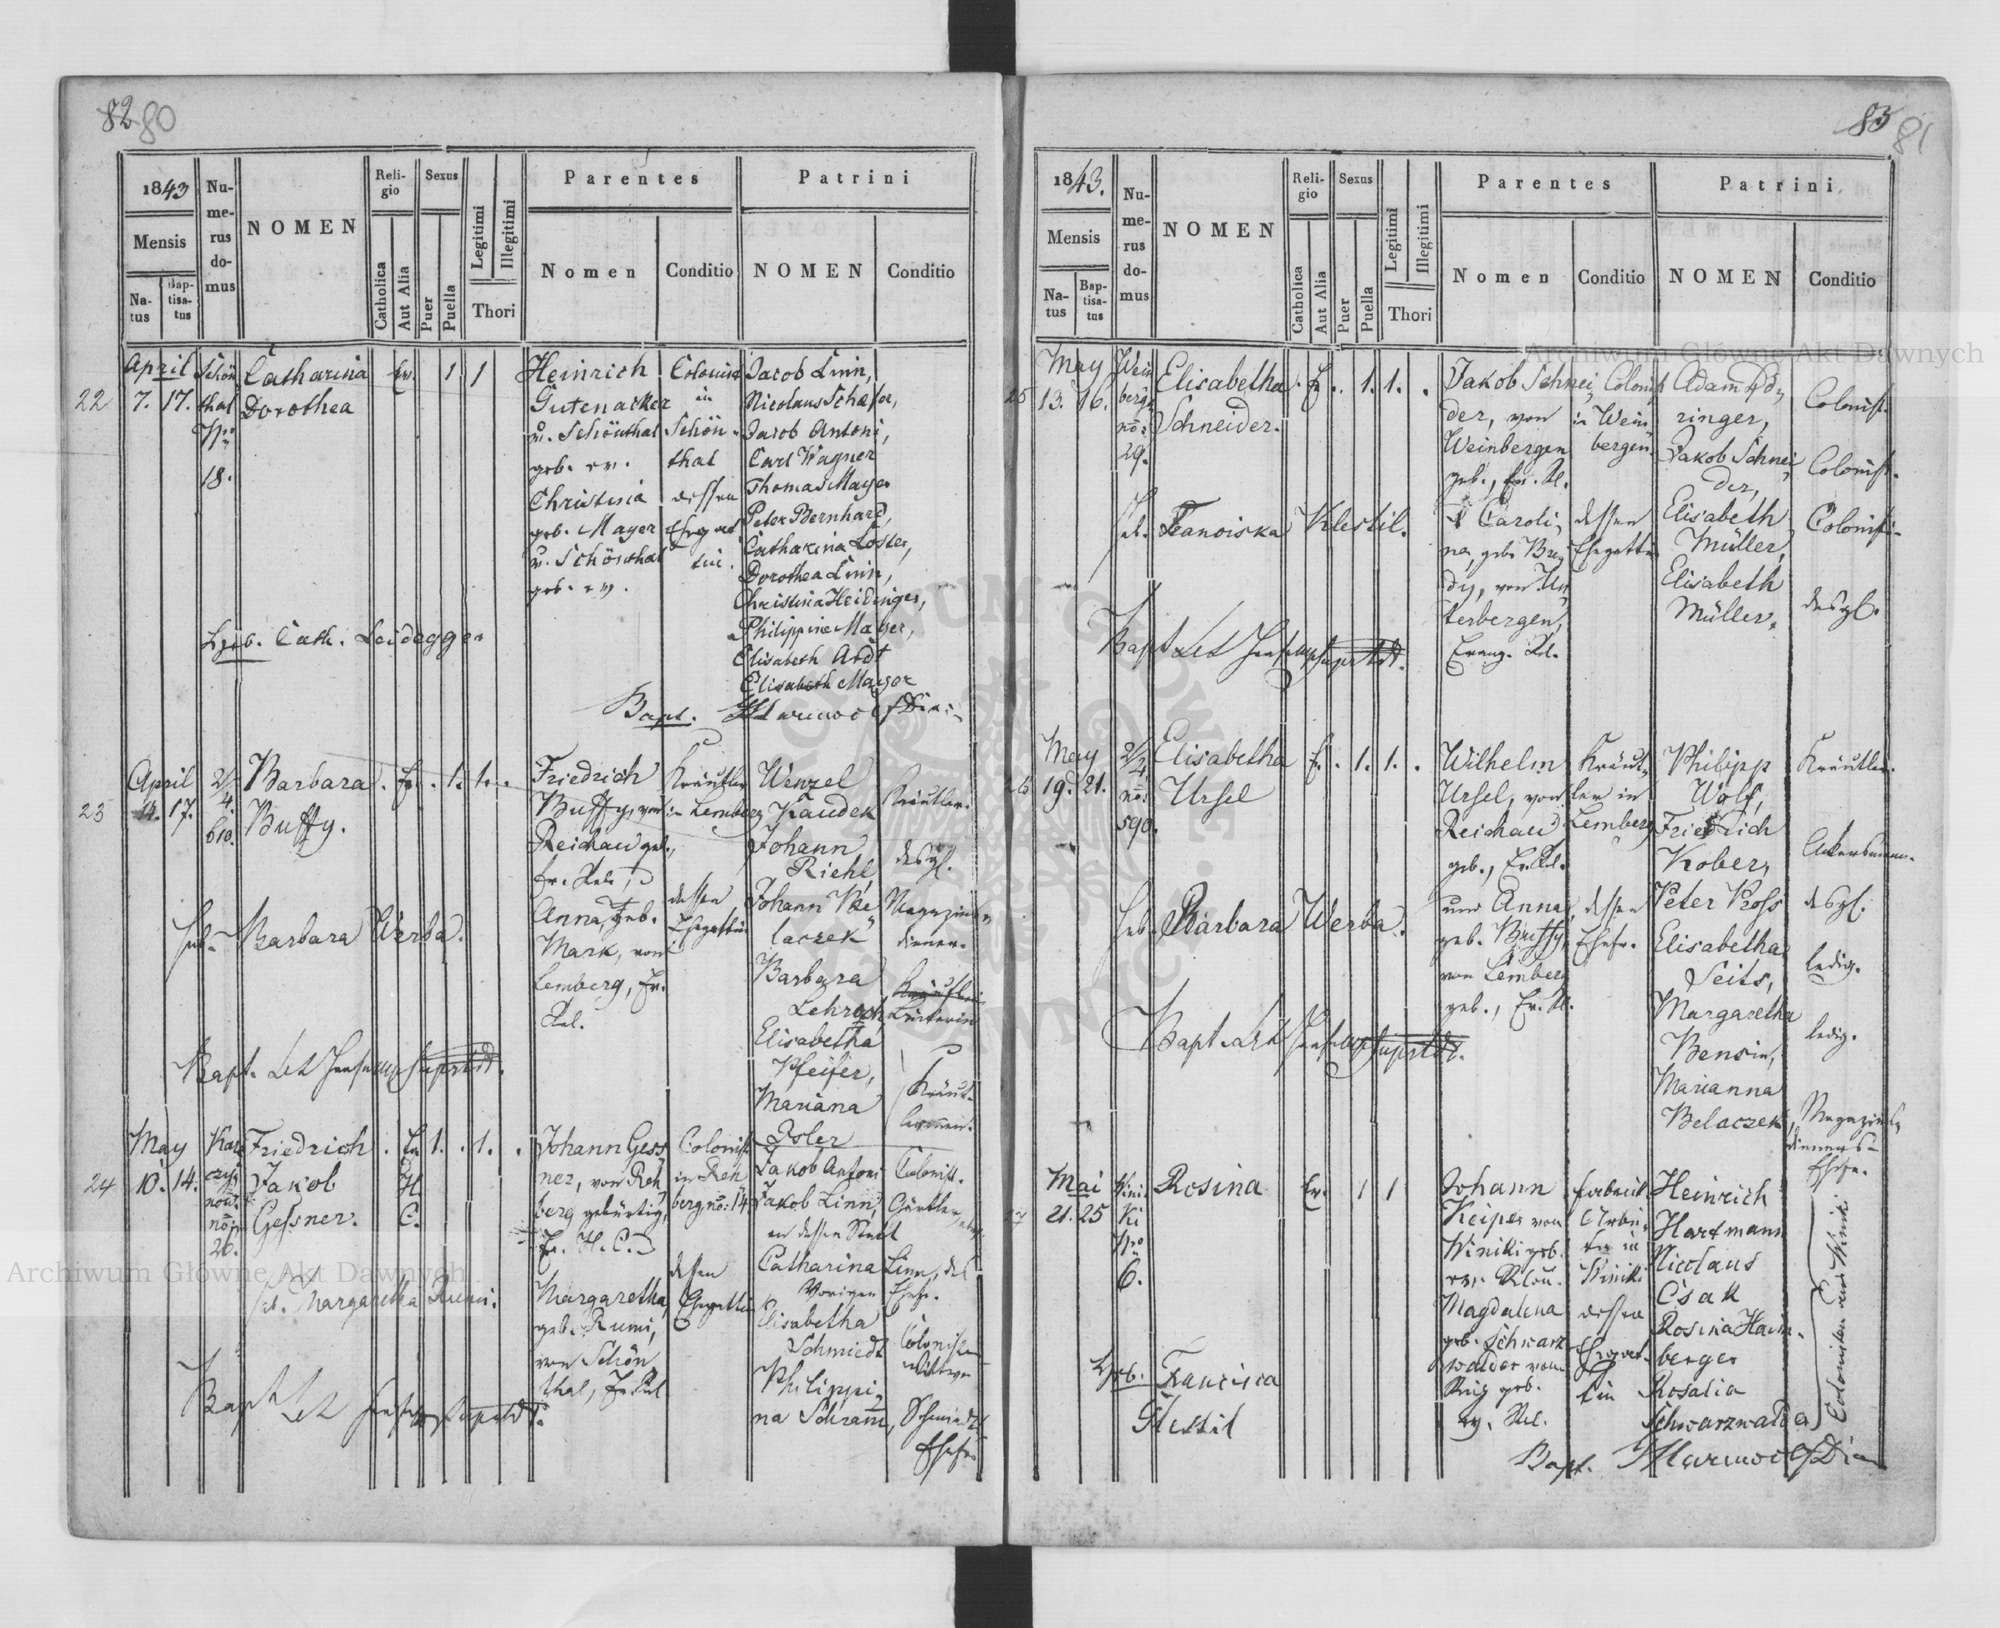 82 80
1843
Mensis
Na-
tus
Bap-
tisa-
tus
Nu-
me-
rus
do-
mus
NOMEN
Reli-
gio
Catholica
Aut Alia
Sexus
Puer
Puella
Legitimi
Illegitimi
Thori
Parentes
Nomen
Conditio
Patrini
NOMEN
Conditio
22
April
7. 17.
Schön
thal
Nro
18.
Catharina
Dorothea
Ev. 1 1
Heinrich
Gutenacker
v. Schönthal
geb. ev.
Christina
geb. Mayer
v. Schönthal
geb. ev.
Colonist
in
Schön-
thal
dessen
Ehegat
tin.
Jacob Linn,
Nicolaus Schäfer,
Jacob Antoni,
Carl Wagner
Thomas Mayer
Peter Bernhard,
Catharina Koster,
Dorothea Linn,
Christina Heidinger,
Philippine Mayer,
Elisabeth Ardt
Elisabeth Mayer
Heb. Cath. Leidegger
Bapt.
23
April
14. 17.
2/4
610.
Barbara
Buffy.
. Ev. . 1. 1. .
Friedrich
Buffy, von
Reichau geb.,
Ev. Rel.,
Anna, geb.
Mark, von
Lemberg, Ev.
Rel.
Kräutler
in Lemberg
dessen
Ehegattin
Wenzel
Kaudek
Johann
Riehl
Johann Be
laczek
Barbara
Lehrock,
Elisabetha
Pfeifer,
Mariana
Isler
Kräutler.
desgl.
Magazins
diener.
Kräut-
lerinnen.
Heb. Barbara Werba.
Bapt.
24
May
10. 14.
nov.
no:
26.
Friedrich
Jakob
Gessner.
. Ev. 1. . 1. .
H.
C.
Johann Gess
ner, von Reh
berg gebürtig,
Ev. H. C.
Margaretha,
geb. Rumi,
von Schön
thal, Ev. Rel
Colonist
in Reh
berg no: 14
dessen
Ehegattin
Jakob Antoni
Jakob Linn,
an dessen Statt
Catharina Linn, des
Vorigen Ehefr.
Elisabetha
Schmiedt
Philippi
na Schram,
Colonist.
Gärtler,
Colonisten
Wittwe
Schmiedts
Ehefr.
Heb. Margaretha Rumi.
Bapt
83 81
1843.
Mensis
Na-
tus
Bap-
tisa-
tus
Nu-
me-
rus
do-
mus
NOMEN
Reli-
gio
Catholica
Aut Alia
Sexus
Puer
Puella
Legitimi
Illegitimi
Thori
Parentes
Nomen
Conditio
Patrini
NOMEN
Conditio
Archiwum Główne Akt Dawnych
25
May
13. 16.
Wein
bergen
no:
29.
Elisabetha
Schneider.
. Ev. . 1. 1. .
Jakob Schnei
der, von
Weinbergen
geb., Ev. Rl.
Caroli
na, geb. Bre
dy, von Un
terbergen,
Evang. Rel.
Colonist
in Wein
bergen
dessen
Ehegattin
Adam
ringer,
Jakob Schnei
der,
Elisabeth
Müller,
Elisabeth
Müller,
Colonist.
Colonist.
Colonist.
desgl.
Heb. Franciska Klestil.
Bapt
26
May
19. 21.
2/4
no:
590.
Elisabetha
Ursel
Ev. . 1. 1. .
Wilhelm
Ursel, von
Reichau
geb., Ev. Rel.
und Anna,
geb. Buffy,
von Lemberg
geb., Ev. Rl.
Kräut
ler in
Lemberg
dessen
Ehefr.
Philipp
Wolf,
Friedrich
Kober,
Peter Ross
Elisabetha
Seits,
Margaretha
Bensin,
Marianna
Belaczek,
Kräutler.
Ackersmann.
desgl.
ledig.
ledig.
Magazins
dieners-
Ehefr.
Heb. Barbara Werba.
Bapt.
Mai
21. 25
Wini
ki
Nro
6.
Rosina
Ev. 1 1
Johann
Keiper von
Winiki geb.
ev. Rlon.
Magdalena
geb. Schwarz
walder von
geb.
ev. Rel.
in
Winiki
dessen
Ehegat-
tin
Heinrich
Hartmann
Nicolaus
Csak
Rosina Haim-
berger
Rosalia
Schwarzwalder
Colonisten aus Winiki
Heb. Francisca
Klestil
Bapt.
Archiwum Główne Akt Dawnych